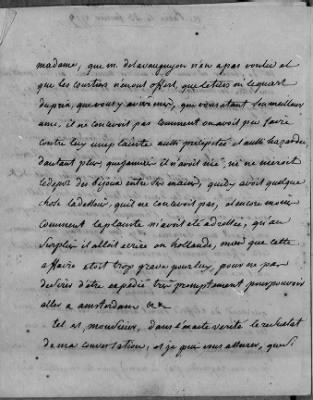 madame, que m. de la vauguyon n'en a pas voulu et
que les courtiers n'en ont offert, que le tiers ou le quart
du prix, que vous y aviez mis, que vous etant son meilleur
ami, il ne concevoit pas comment on avoit pu faire
contre luy une plainte aussi precipitée et aussi hazardée,
d'autant plus, que jamais il n'avoit nié, ni ne nieroit
le depot des bijoux entre ses mains, qu'il y avoit quelque
chose la dessous, qu'il ne concevoit pas, et encore moins
comment la plainte m'avoit eté adressée, qu'au
surplus il alloit ecrire en hollande, mais que cette
affaire etoit trop grave pour luy, pour ne pas
desirer d'être expédié très promptement pour pouvoir
aller a amsterdam &a.
Tel est, monsieur, dans l'exacte verité le resultat
de ma conversation, et je puis vous assurer, que